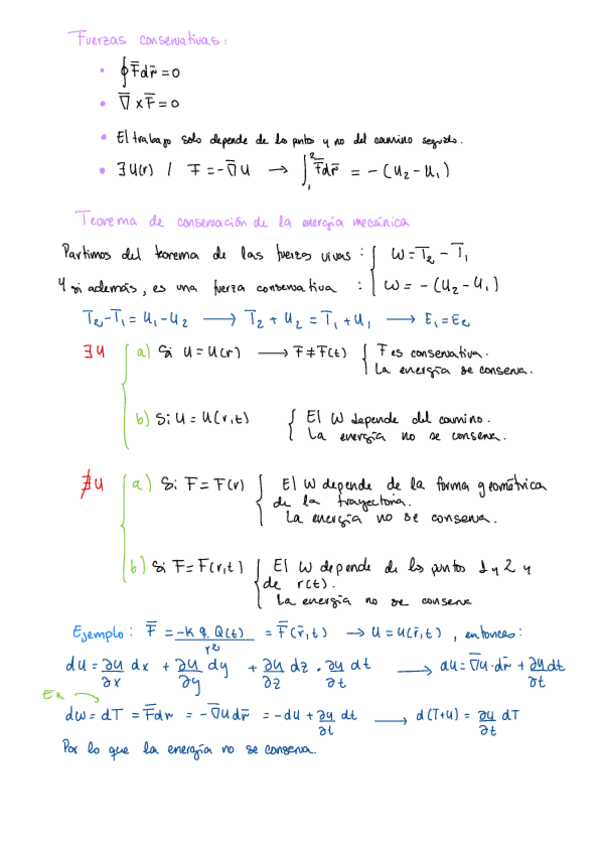 Fuerzas conservativas:
• ∮F̄dr̄ = 0
• ∇̄ x F̄ = 0
• El trabajo solo depende de los pntos y no del camino seguido.
• ∃ U(r) / F̄ = -∇̄U → ∫₁² F̄dr̄ = -(U₂ - U₁)
Teorema de conservación de la energía mecánica
Partimos del teorema de las fuerzas vivas : { W = T₂ - T₁
Y si además, es una fuerza conservativa : { W = -(U₂ - U₁)
T₂ - T₁ = U₁ - U₂ → T₂ + U₂ = T₁ + U₁ → E₁ = E₂
∃ U { a) Si U = U(r) → F ≠ F(t) { F es conservativa.
La energía se conserva.
b) Si U = U(r,t) { El W depende del camino.
La energía no se conserva.
∄ U { a) Si F = F(r) { El W depende de la forma geométrica
de la trayectoria.
La energía no se conserva.
b) Si F = F(r,t) { El W depende de los puntos 1 y 2 y
de r(t).
La energía no se conserva
Ejemplo: F̄ = -K q Q(t) / r² = F̄(r̄,t) → U = U(r̄,t), entonces:
dU = ∂U/∂x dx + ∂U/∂y dy + ∂U/∂z dz . ∂U/∂t dt → dU = ∇̄U·dr̄ + ∂U/∂t dt
dW = dT = F̄dr = -∇̄Udr̄ = -dU + ∂U/∂t dt → d(T+U) = ∂U/∂t dT
Por lo que la energía no se conserva.